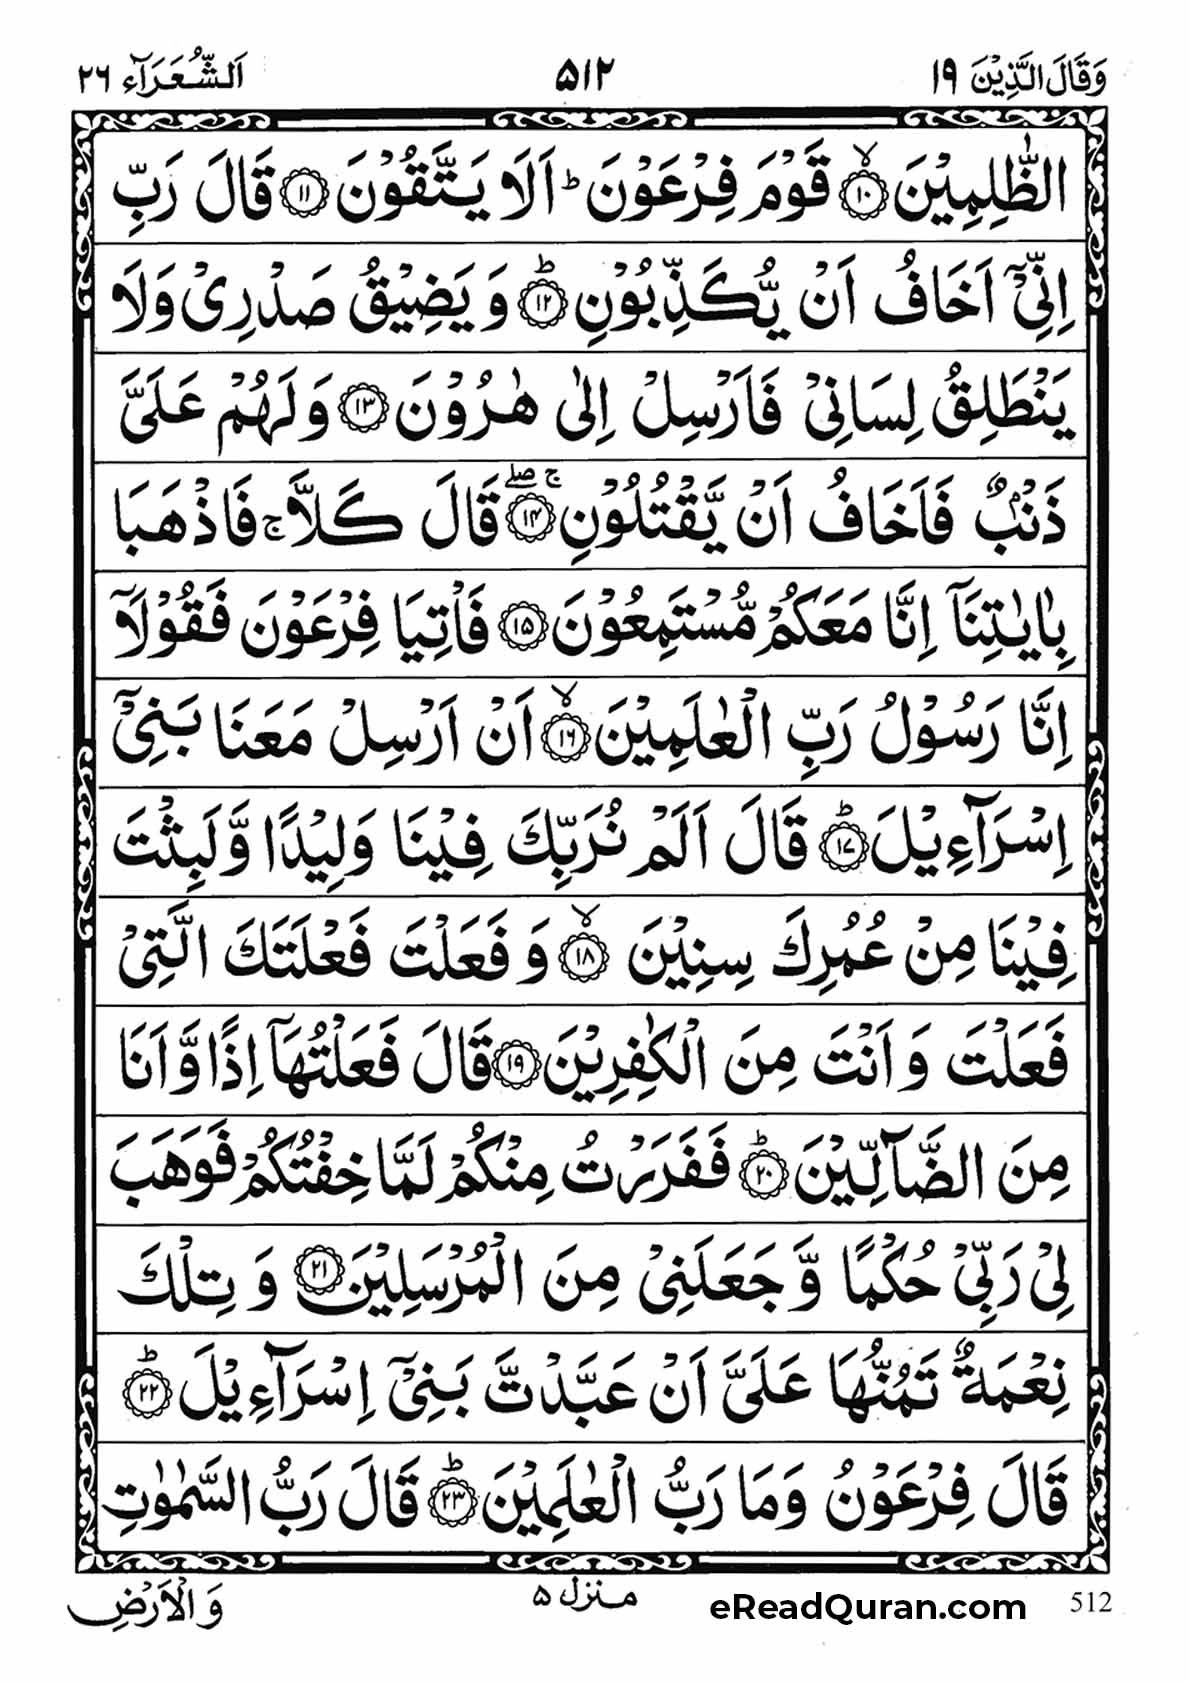 وَقَالَ الَّذِيْنَ ١٩ ۵١٢ اَلشُّعَرَآء ٢٦
الظّٰلِمِيْنَ ۙ‏﴿۱۰﴾ قَوْمَ فِرْعَوْنَ‌ ؕ اَلَا يَتَّقُوْنَ ‏﴿۱۱﴾ قَالَ رَبِّ
اِنِّىْۤ اَخَافُ اَنْ يُّكَذِّبُوْنِ ؕ‏﴿۱۲﴾ وَ يَضِيْقُ صَدْرِىْ وَلَا
يَنْطَلِقُ لِسَانِىْ فَاَرْسِلْ اِلٰى هٰرُوْنَ ‏﴿۱۳﴾ وَلَهُمْ عَلَىَّ
ذَنْۢبٌ فَاَخَافُ اَنْ يَّقْتُلُوْنِ‌ۚ‌ۖ‏﴿۱۴﴾ قَالَ كَلَّا‌ ۚ فَاذْهَبَا
بِاٰيٰتِنَآ‌ اِنَّا مَعَكُمْ مُّسْتَمِعُوْنَ ‏﴿۱۵﴾ فَاْتِيَا فِرْعَوْنَ فَقُوْلَاۤ
اِنَّا رَسُوْلُ رَبِّ الْعٰلَمِيْنَ ۙ‏﴿۱۶﴾ اَنْ اَرْسِلْ مَعَنَا بَنِىْۤ
اِسْرَآءِيْلَ ؕ‏﴿۱۷﴾ قَالَ اَلَمْ نُرَبِّكَ فِيْنَا وَلِيْدًا وَّلَبِثْتَ
فِيْنَا مِنْ عُمُرِكَ سِنِيْنَ ۙ‏﴿۱۸﴾ وَ فَعَلْتَ فَعْلَتَكَ الَّتِىْ
فَعَلْتَ وَ اَنْتَ مِنَ الْكٰفِرِيْنَ ‏﴿۱۹﴾ قَالَ فَعَلْتُهَاۤ اِذًا وَّ اَنَا
مِنَ الضَّآلِّيْنَ ؕ‏﴿۲۰﴾ فَفَرَرْتُ مِنْكُمْ لَمَّا خِفْتُكُمْ فَوَهَبَ
لِىْ رَبِّىْ حُكْمًا وَّ جَعَلَنِىْ مِنَ الْمُرْسَلِيْنَ ‏﴿۲۱﴾ وَ تِلْكَ
نِعْمَةٌ تَمُنُّهَا عَلَىَّ اَنْ عَبَّدْتَّ بَنِىْۤ اِسْرَآءِيْلَ ؕ‏﴿۲۲﴾
قَالَ فِرْعَوْنُ وَمَا رَبُّ الْعٰلَمِيْنَ ؕ‏﴿۲۳﴾ قَالَ رَبُّ السَّمٰوٰتِ
وَ الْاَرْضِ منزل ۵ eReadQuran.com 512